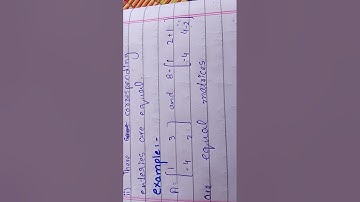 ii) There corresponding
enteries are equal.
example:-
A = [1 3 and B = [1 2+1
-4 2] -4 4-2]
are equal matrices.